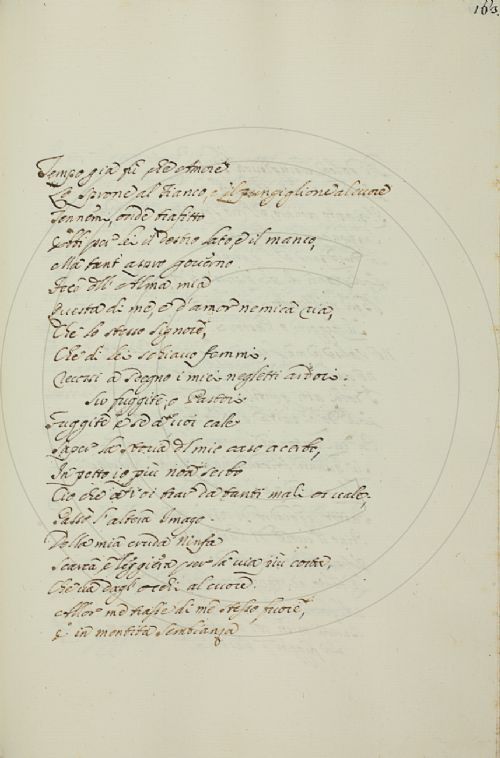 163.
Tempo già fù che Amore
Lo sprone al fianco, e il pungiglione al cuore
Tennemi, onde trafitto
ebbi per lei il destro lato, e il manco,
Ma tant' governo
Fece dell' Alma mia
Questa di me, e d'amor nemica ria,
Che lo stesso Signore,
Che di lei schiavo femmi,
Recossi a sdegno i miei negletti ardori.
Sù fuggite, o Pastori
Fuggite, e se à voi cale
Saper la storia del mio caso acerbo,
In petto io più non serbo
Ciò che à voi trar da tanti mali or vale;
Passò l'altera Imago
Della mia cruda Ninfa
Scarca, e leggiera per la via più corta,
Che và dagl' occhi al cuore.
Allor me trasse di me stesso fuore,
E in mentita sembianza